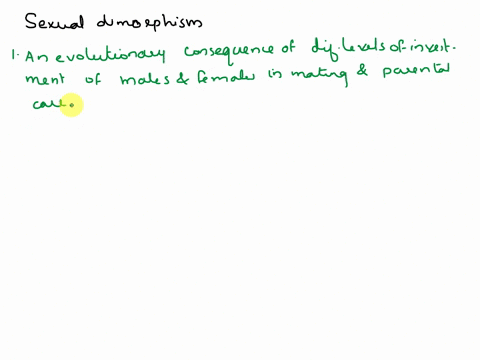 Sexual dimorphism
1. An evolutionary consequence of dif. levels of invest-
ment of males & female in mating & parental
care.